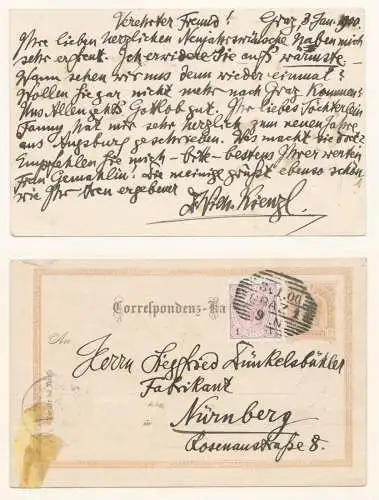 Verehrter Freund! Graz 3 Jan. 1900.
Ihre lieben herzlichen Neujahrswünsche haben mich
sehr erfreut. Ich erwidere Sie aufs wärmste.
Wann sehen wir uns denn wieder einmal?
Wollen Sie gar nicht mehr nach Graz kommen?
Uns Allen geht's Gottlob gut. Ihr liebes Töchterlein
Fanny hat mir sehr herzlich zum neuen Jahre
aus Augsburg geschrieben. Was macht sie dort?
Empfehlen Sie mich – bitte – bestens Ihrer werten
Frau Gemahlin! Die meinige grüßt ebenso schön
wie Ihr Ihnen ergebener
Dr Wilh. Kienzl
Correspondenz-Ka
3.1.00
GRAZ
An
Herrn Siegfried Dünkelsbühler
Fabrikant
in
Nürnberg
Rosenaustraße 8.